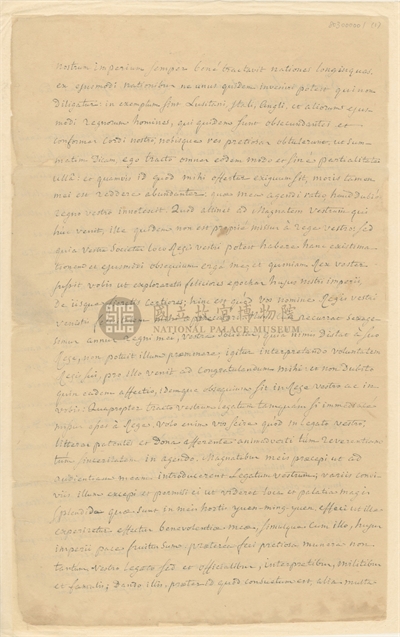 nostrum Imperium semper bonè tractavit nationes longinquas,
ex ejusmodi nationibus ne unus quidem inveniri potest qui non
diligatur: in exemplum sint Lusitani, Itali, Angli, et aliorum ejus-
modi Regnorum homines, qui quidem sunt obsecundantes et
conformes Cordi nostro, nobisque res pretiosas obtulerunt, ut summa-
Dicam, ego tracto omnes eodem modo et sine partialitate
ulla: et quamvis id quod mihi offertur exiguum sit, moris tamen
mei est reddere abundanter, quae mea agendi ratio haud dubie
regno vestro innotescit. Quid attinet ad Magnatem Vestrum qui
huc venit, illa quidem non est propriè missus à Rege vestro, sed
quia Vestra Societas loco Regis vestri potest habere hanc existima-
tionem et ejusmodi obsequium ergà me, et quoniam Rex vester
jussit vobis ut explorantes feliciores epochas hujus nostri imperii
de iisque facti certiores, hinc est quod vos nomine Regis vestri
venati
annus Regni mei, verum Societas, quia nimis distat à suo
Rege, non potuit illum praemonere; igitur interpretando voluntatem
Regis sui, pro illo venit ad Congratulandum mihi: et non dubito
quin eodem affectu, idemque obsequium sit in Rege vestro ac in
vobis. Quapropter tracto vestrum legatum tamquam si immediatè
missus esset à Rege. volo enim vos scire quod in legato vestro,
litteras patentes et Dona afferente animadverti tum reverentiam
tum sinceritatem in agendo. Magnatibus meis praecepi ut ad
audientiam meam introducerent Legatum vestrum; variis convi-
viis illum excepi et permisi ei ut videret loca et palatia magis
splendida quae sunt in meis hortis Yuen-ming-yuen. effeci ut ille
experiretur effectus benevolentiae meae, simulque cum illo, hujus
imperii pace fruitus sum. praeterea feci pretiosa munera non
tantùm Vestro Legato sed et officialibus, interpretibus, militibus
et famulis; Dando illis, praeter id quod consuetum est, alia multa
國立故宮博物院
NATIONAL PALACE MUSEUM